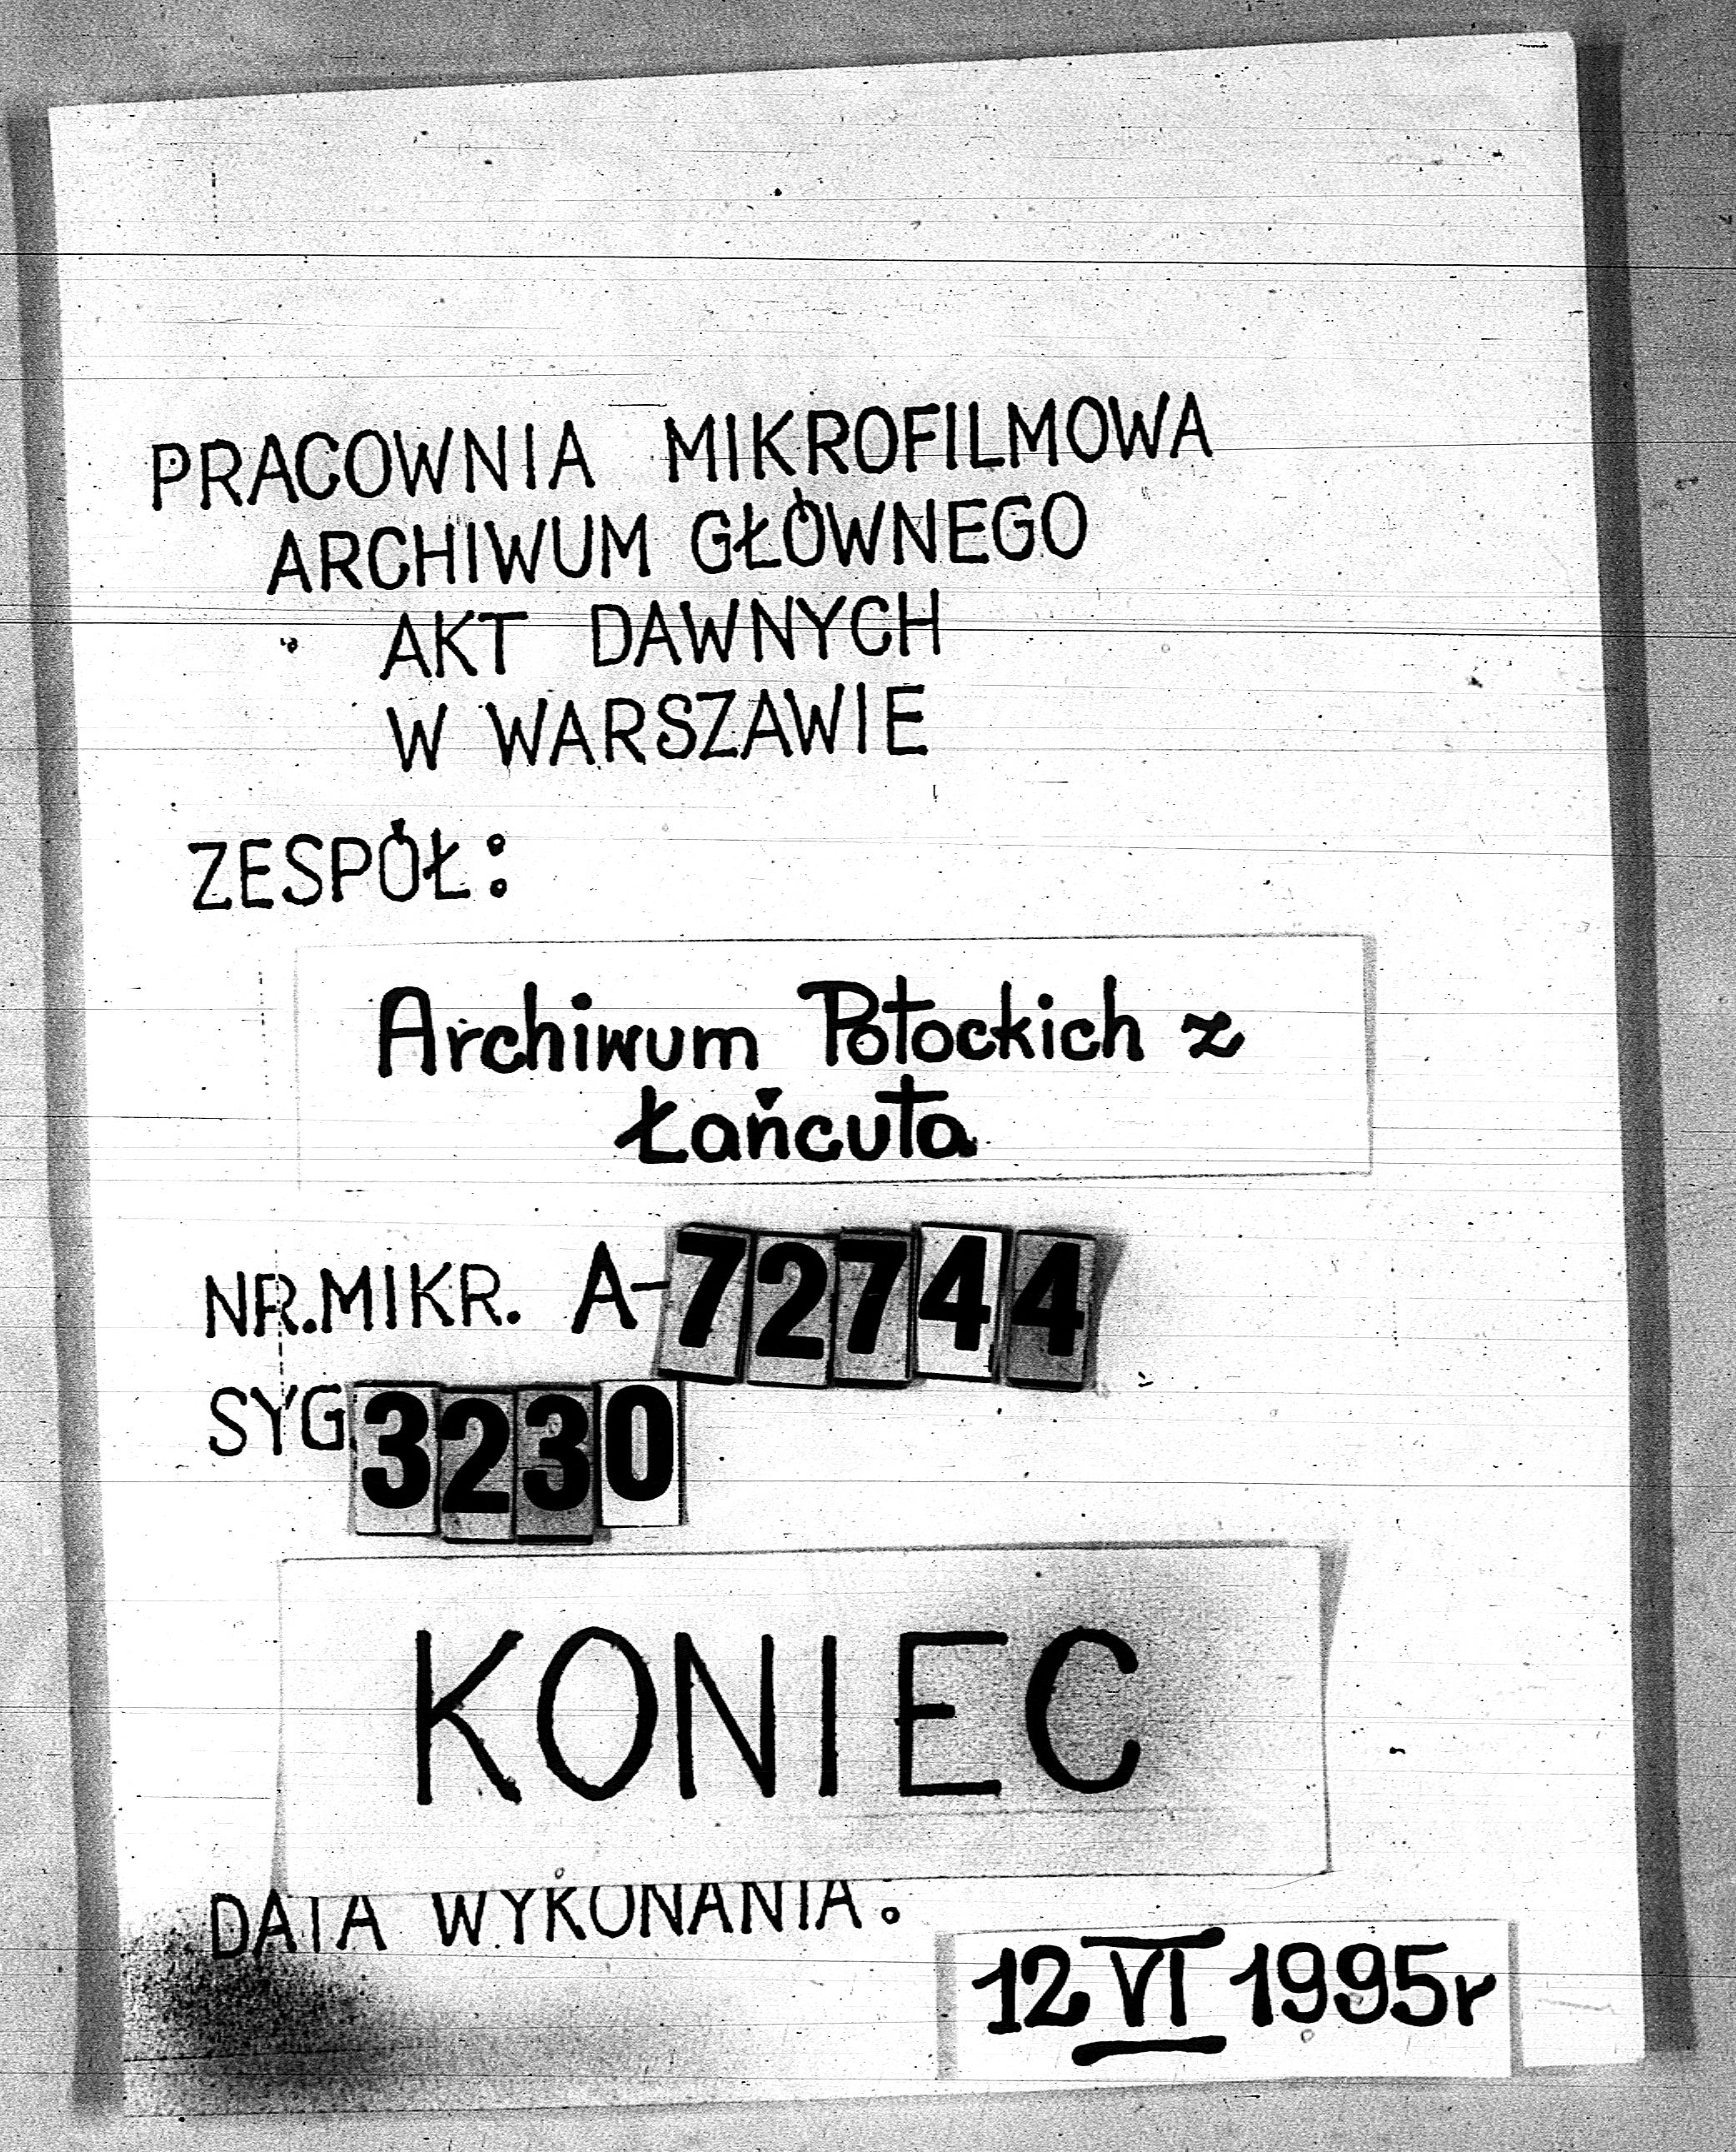 PRACOWNIA MIKROFILMOWA
ARCHIWUM GŁÓWNEGO
AKT DAWNYCH
W WARSZAWIE
ZESPÓŁ:
Archiwum Potockich z
Łańcuta
NR.MIKR. A-72744
SYG. 3230
KONIEC
DATA WYKONANIA:
12 VI 1995r